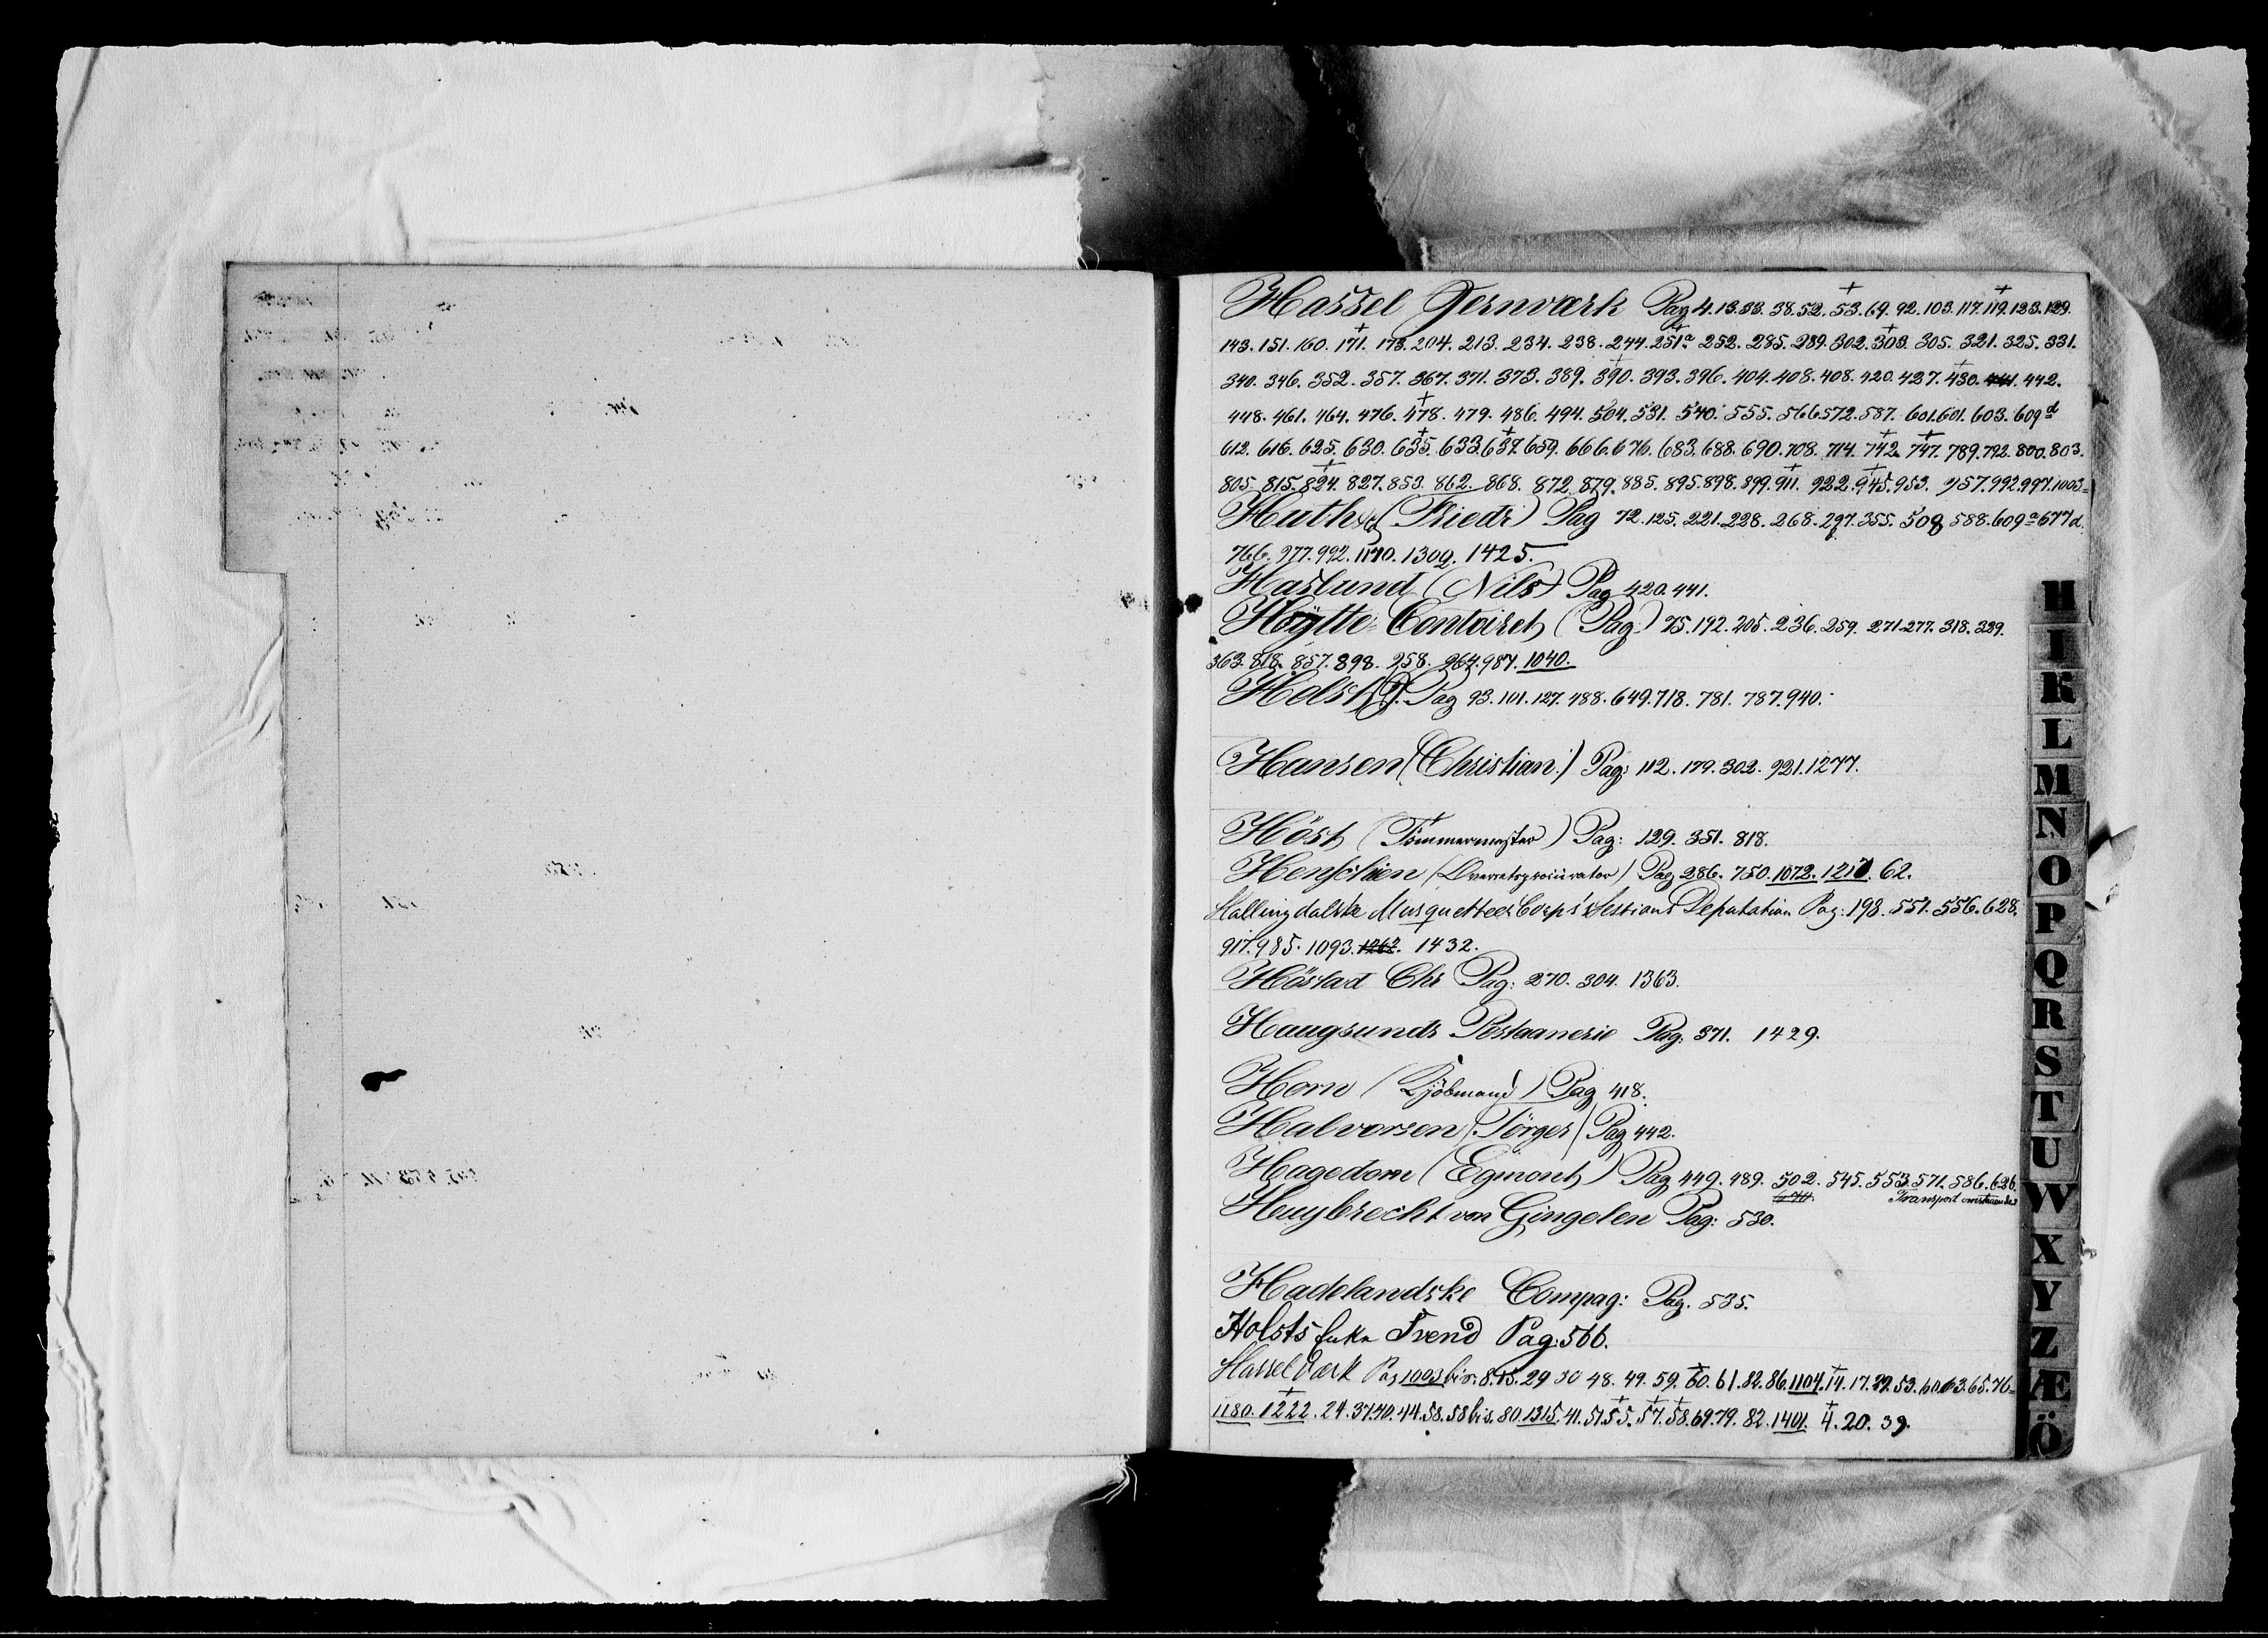 Hassel Jernværk Pag 4. 13. 33. 38. 52. 53. 69. 92. 103. 117. 119. 123. 129.
143. 151. 160. 171. 173. 204. 213. 234. 238. 244. 251a. 252. 285. 289. 302. 303. 305. 321. 325. 331.
340. 346. 352. 357. 367. 371. 373. 389. 390. 393. 396. 404. 408. 408. 420. 427. 430. 441. 442.
448. 461. 464. 476. 478. 479. 486. 494. 504. 531. 540. 555. 566. 572. 587. 601. 601. 603. 609d
612. 616. 625. 630. 635. 633. 637. 659. 666. 676. 683. 688. 690. 708. 714. 742. 747. 789. 792. 800. 803.
805. 815. 824. 827. 853. 862. 868. 872. 879. 885. 895. 898. 899. 911. 922. 945. 953. 957. 992. 997. 1003=
Huth (Friedr) Pag 72. 125. 221. 228. 268. 297. 355. 508 588. 609a 677d.
766. 977. 992. 1170. 1309. 1425.
Haslund (Nils) Pag 420. 441.
Høytte=Contoiret (Pag:) 75. 192. 205. 236. 259. 271. 277. 318. 329.
363. 818. 857. 898. 258. 264. 987. 1040.
Holst P. Pag 93. 101. 127. 488. 649. 718. 781. 787. 940.
Hansen (Christian) Pag: 112. 179. 302. 921. 1277.
Höst (Tömmermester) Pag: 129. 351. 818.
Henschien (Overretsprocurator) Pag 286. 750. 1072. 1217. 62.
Hallingdalske Musquetteer Corps's Sessions Deputation Pag: 193. 551. 556. 628.
917. 985. 1093. 1262. 1432.
Höstad Chr Pag: 270. 304. 1363.
Haugsunds Postaaneri Pag: 371. 1429.
Horn (Kjöbmand) Pag 418.
Halvorsen (Törger) Pag 442.
Hagedorn (Egmont) Pag 449. 489. 502. 545. 553. 571. 586. 626.
Transport
Huybrecht van Gingelen Pag: 530.
Hadelandske Compag: Pag. 535.
Holsts Enke Svend Pag: 566.
Hassel Værk Pag 1003 bis. 8. 15. 29 30 48. 49. 59. 60. 61. 82. 86. 1104. 14. 17. 29. 53. 60. 63. 65. 76=
1180. 1222. 24. 37. 40. 44. 58. 58 bis. 80. 1315. 41. 51. 55. 57. 58. 69. 79. 82. 1401. 4. 20. 39.
H
I
K
L
M
N
O
P
Q
R
S
T
U
W
X
Y
Z
Æ
Ö